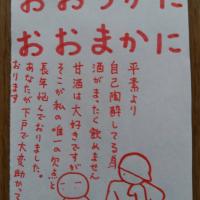 おおらかに
おおまかに
平素より
自己陶酔してる身
酒がまったく飲めません
甘酒は大好きですが
そこが私の唯一の欠点と
長年悩んでおりました。
あなたが下戸で大変助かって
おります